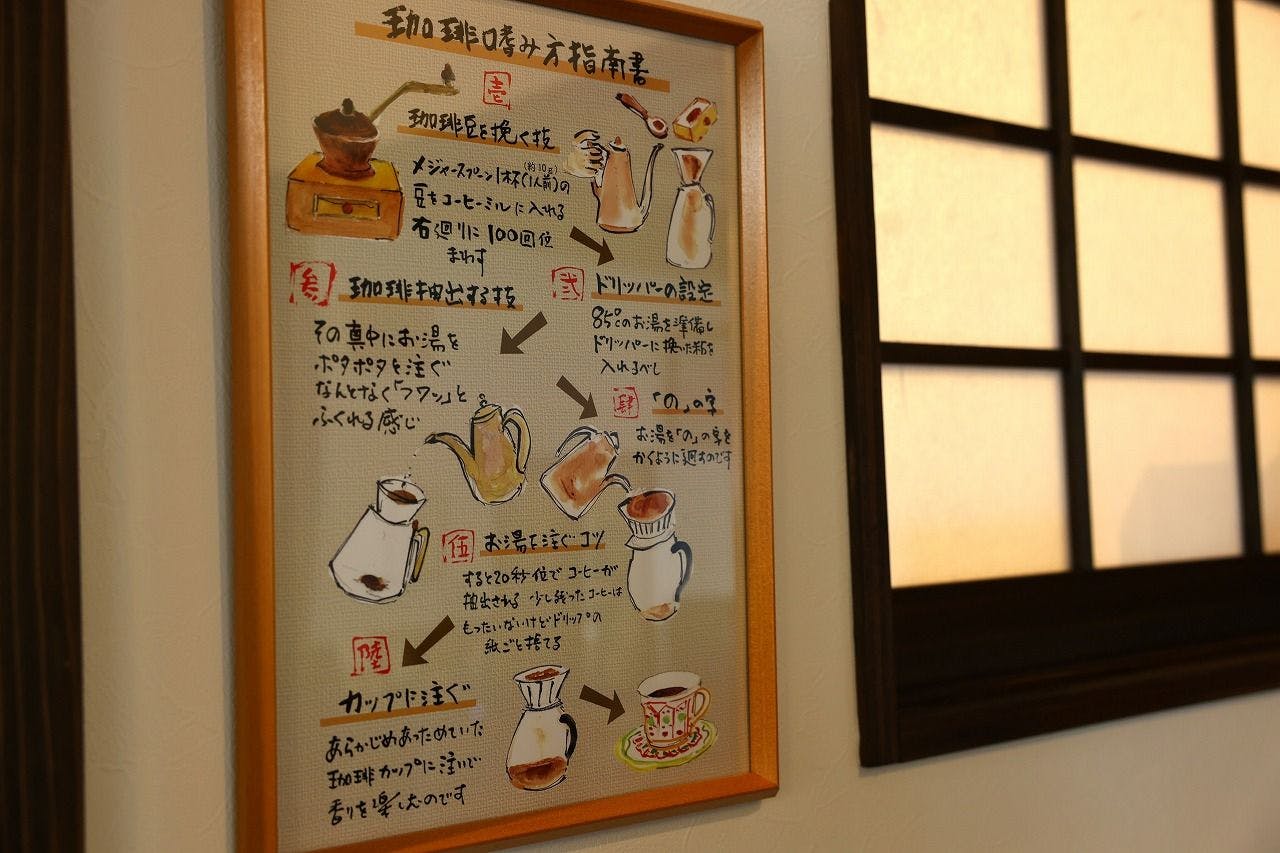 珈琲嗜み方指南書
壱
珈琲豆を挽く技
メジャースプーン1杯(1人前)の
約10g
豆をコーヒーミルに入れる
右廻りに100回位
まわす
弐
ドリッパーの設定
85℃のお湯を準備し
ドリッパーに挽いた粉を
入れるべし
参
珈琲抽出する技
その真中にお湯を
ポタポタと注ぐ
なんとなく「フワッ」と
ふくれる感じ
肆
「の」の字
お湯を「の」の字を
かくように廻すのです
伍
お湯を注ぐコツ
すると20秒位でコーヒーが
抽出される 少し残ったコーヒーは
もったいないけどドリップの
紙ごと捨てる
陸
カップに注ぐ
あらかじめあっためていた
珈琲カップに注いで
香りを楽しむのです